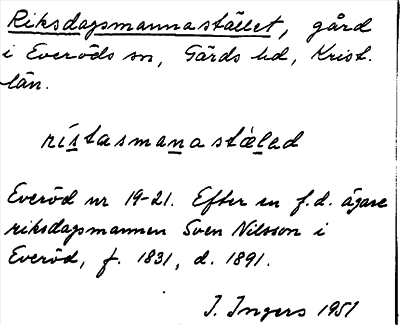 Riksdagsmannastället, gård
i Everöds sn, Gärds hd, Krist.
län.
ristasmanastälad
Everöd nr 19-21. Efter en f.d. ägare
riksdagsmannen Sven Nilsson i
Everöd, f. 1831, d. 1891.
J. Ingers 1951